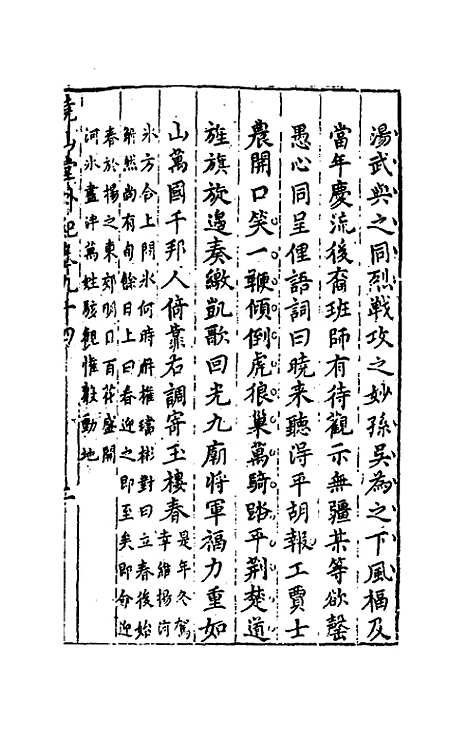 湯武與之同烈戰攻之妙孫吳為之下風福及
當年慶流後裔班師有待觀示無疆某等欲罄
愚心同呈俚語詞曰曉来聽得平胡報工賈士
農開口笑一鞭傾倒虎狼巢萬騎踏平荆楚道
旌旗旋邊奏繳凱歌回光九廟將軍福力重如
山萬國千邦人倚靠右調寄玉樓春是年冬駕
幸維揚河
氷方合上問氷何時解權璫彬對曰立春後始
解然尚有旬餘日上曰春迎之即至矣即命迎
春於揚之東郊明日百花盛開
河氷盡泮萬姓駭觀惟歡動地
堯山堂外紀卷九十四